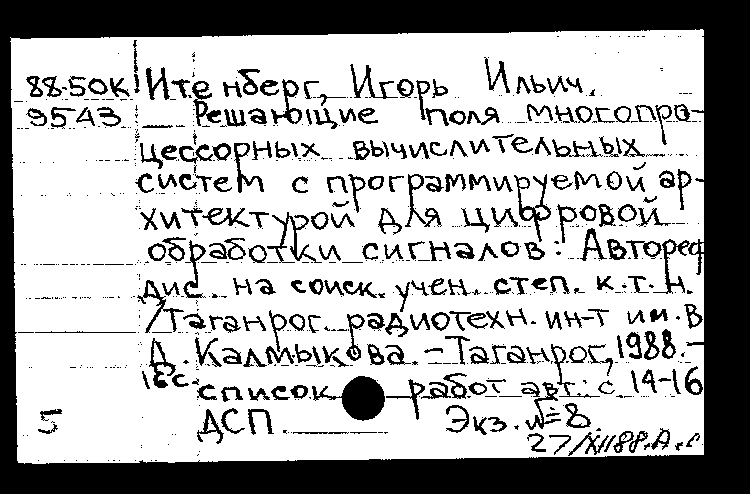 88-50к Итенберг, Игорь Ильич.
9543 Решающие поля многопро-
цессорных вычислительных
систем с программируемой ар-
хитектурой для цифровой
обработки сигналов: Автореф
дис. на соиск. учен. степ. к.т.н.
/Таганрог. радиотехн. ин-т им. В
Д. Калмыкова. - Таганрог, 1988. -
16 с. список работ авт.: с 14-16
5 ДСП. Экз. №8.
27/XII88. А.с